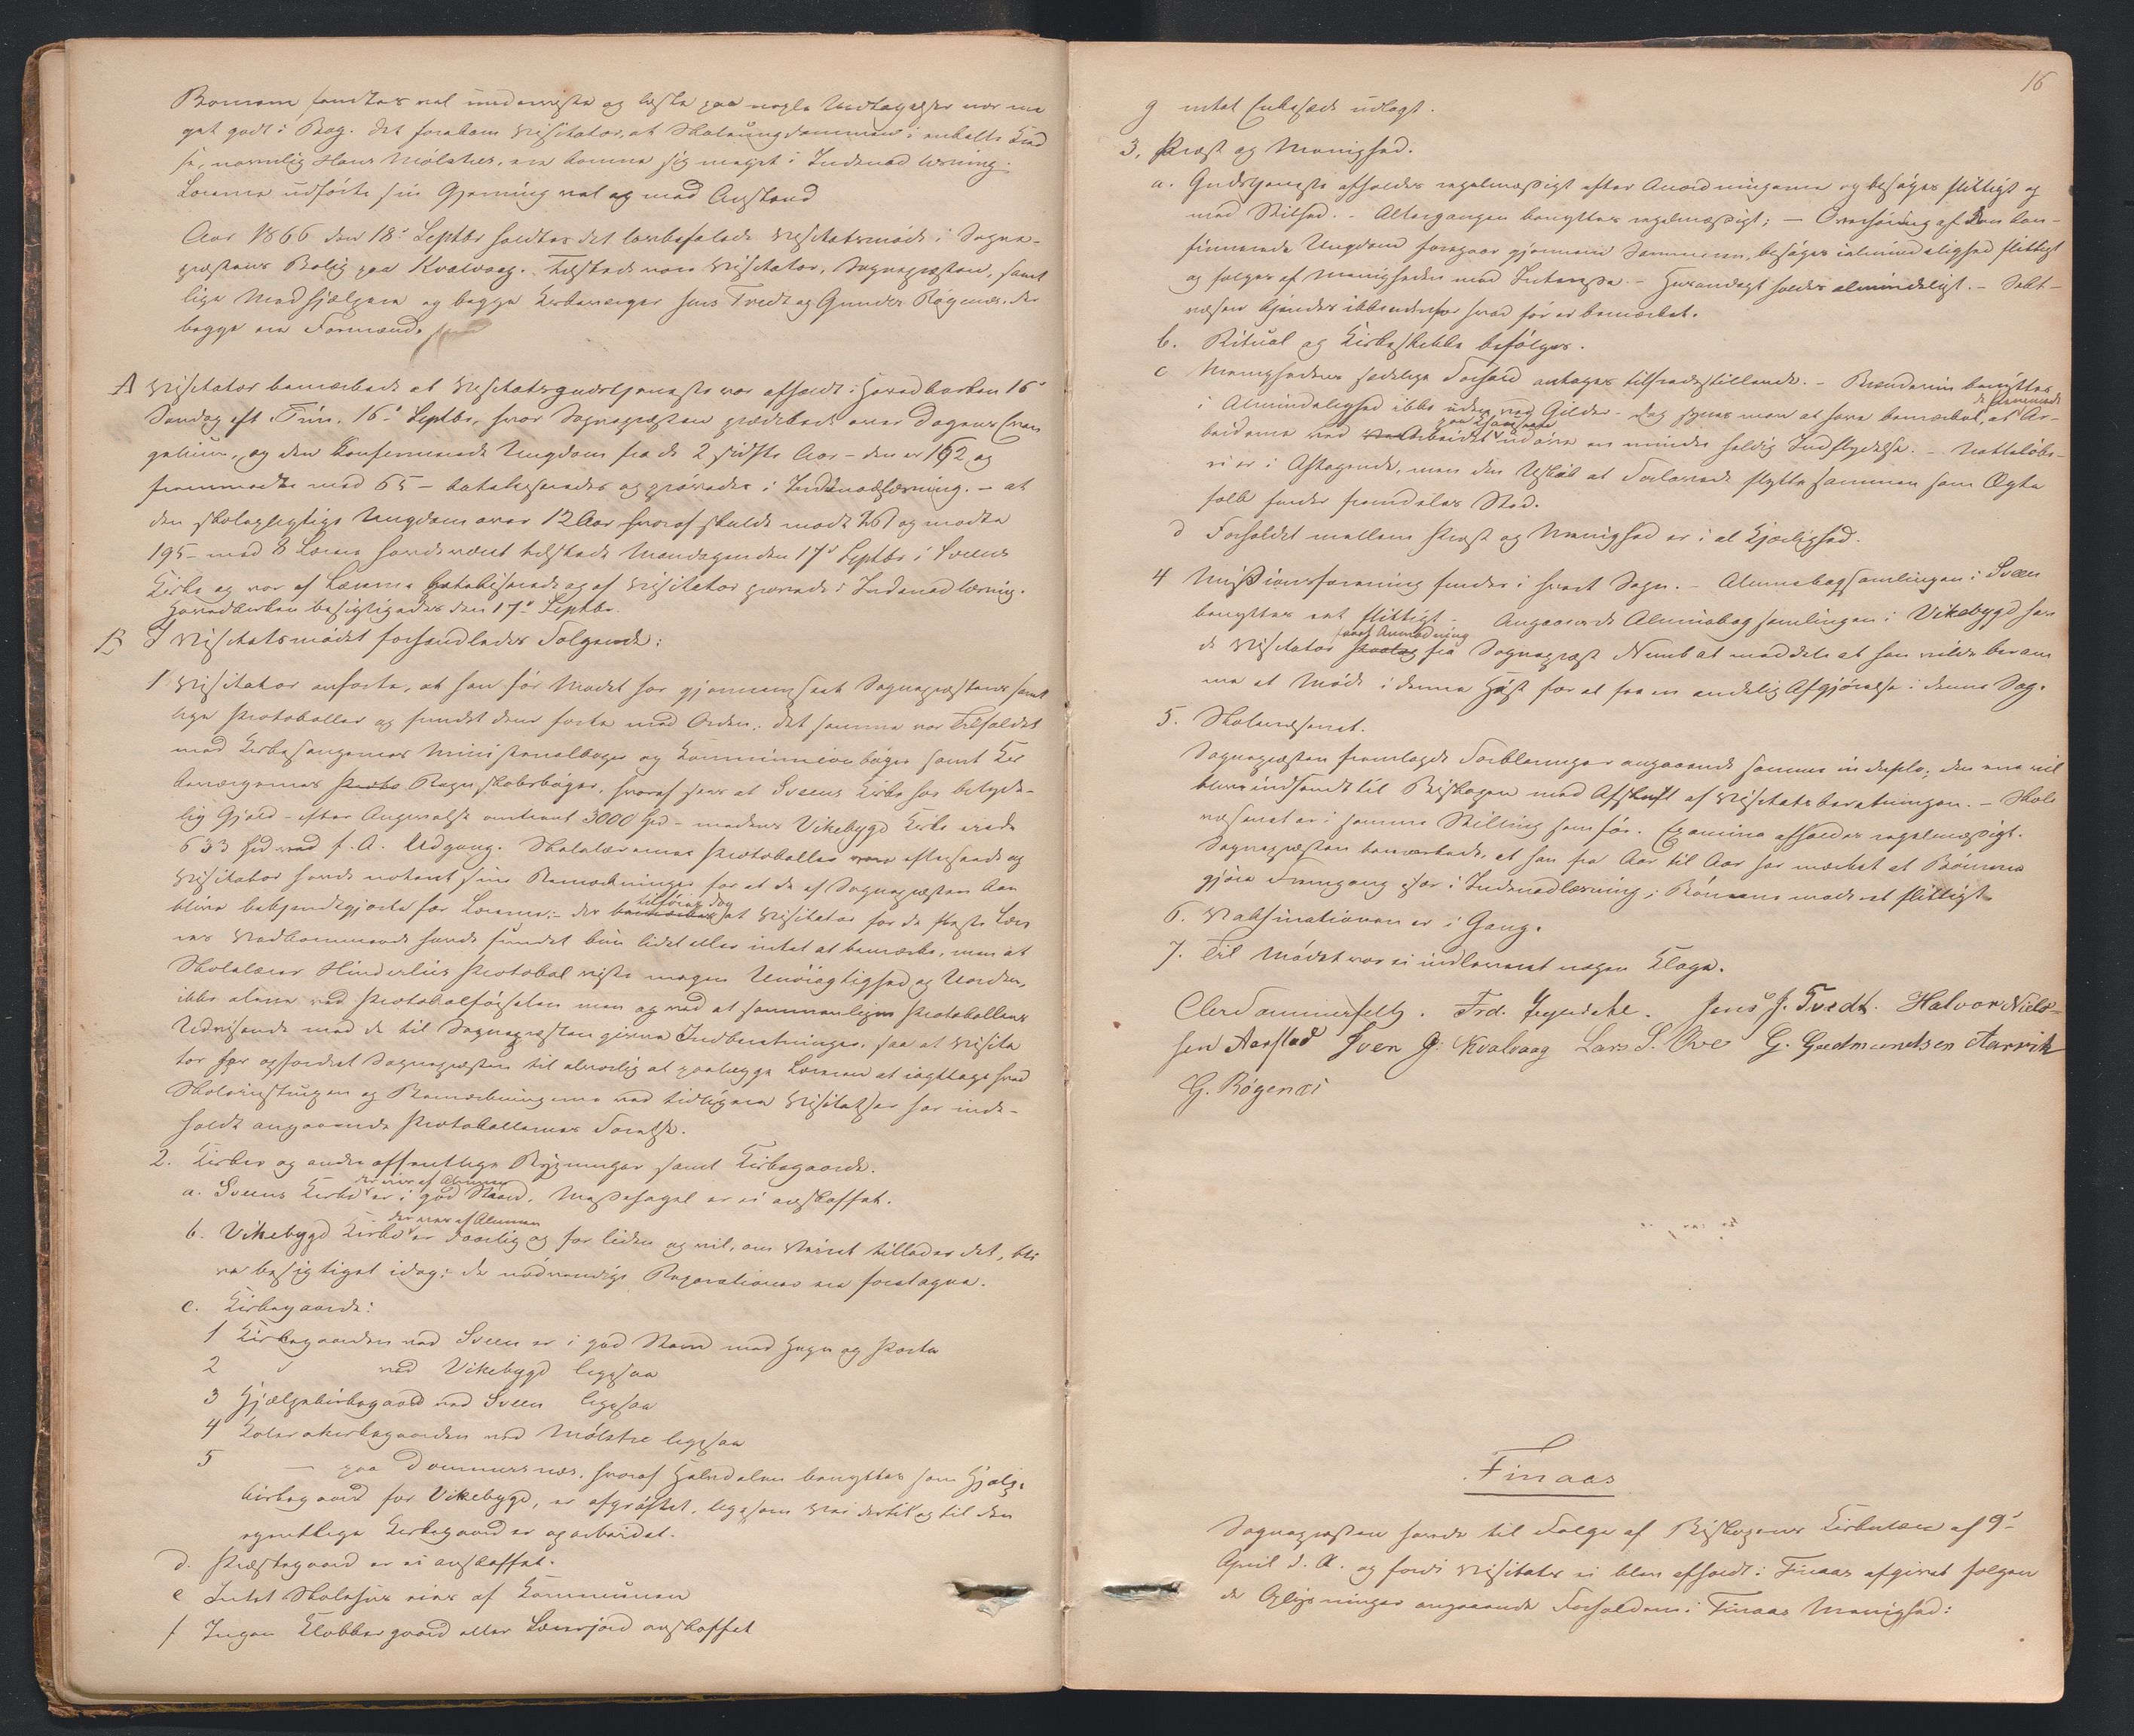 Børnene fandtes vel underviste og læste paa nogle Undtagelser nær me
get godt i Bog. Det forekom Visitator, at Skoleungdommen i enkelte Kred
se, navnlig Hans Mølstres, ere komne sig meget i Indenad læsning.
Lærerne udførte sin Gjerning vel og med Anstand
Aar 1866 den 18de Septbr holdtes det lovbefalede Visitatsmøde i Sogne-
præstens Bolig paa Kvalvaag. Tilstede vare Visitator, Sognepræsten, samt
lige Medhjælpere og begge Kirkeværger Jens Tvedt og Gunder Røgenæs, der
begge ere Formænd.
A Visitator bemærkede at Visitatsgudstjeneste var afholdt i Hovedkirken 16de
Søndag eft. Trin. 16de Septbr, hvor Sognepræsten prædikede over Dagens Evan
gelium, og den Confirmerede Ungdom fra de 2 sidste Aar - den er 162 og
fremmødte med 65 - katekiseredes og prøvedes i Indenadlæsning. - at
den skolepligtige Ungdom over 12 Aar, hvoraf skulde møde og mødte
195 - med 8 Lærere havde været tilstede Mandagen den 17de Septbr i Sveens
Kirke og var af Lærerne katekiserede og af Visitator prøvede i Indenad læsning.
Hovedkirken besigtigedes den 17de Septbr.
B I Visitatsmødet forhandledes Følgende:
1 Visitator anførte, at han før Mødet har gjennemseet Sognepræstens samt
lige Protokoller og fundet dem førte med Orden; det samme var Tilfældet
med Kirkesangernes Ministerialbøger og Communionbøger samt Kir
keværgernes Regnskabsbøger, hvoraf sees at Sveens Kirke har betyde-
lig Gjæld - efter Angivelse omtrent 3000 Spd - medens Vikebygd Kirke eiede
633 Spd ved f. A. Udgang. Skolelærernes Protokoller vare eftersaaede og
Visitator havde noteret sine Bemærkninger for at de af Sognepræsten kan
blive bekjendtgjorte for Lærerne; - der tilføies dog at Visitator for de fleste Lære
res Vedkommende havde fundet kun lidet eller intet at bemærke, men at
Skolelærer Hinderlies Protokol viste megen Unøiagtighed og Uorden,
ikke alene ved Protokolførselen men og ved at sammenligne Protokollens
Udvisende med de til Sognepræsten givne Indberetninger, saa at Visita
tor har opfordret Sognepræsten til alvorlig at paalægge Læreren at iagttage hvad
Skoleinstruxen og Bemærkningerne ved tidligere Visitatser har inde-
holdt angaaende Protokollernes Førelse.
2. Kirker og andre offentlige Bygninger samt Kirkegaarde.
a. Sveens Kirke der eies af Almuen er i god Stand. Messehagel er ei anskaffet.
b. Vikebygd Kirke der eies af Almuen er daarlig og for liden og vil, om Veiret tillader det, bli
ve besigtiget idag; de nødvendige Reparationer ere foretagne.
c. Kirkegaarde:
1 Kirkegaarden ved Sveen er i god Stand med Hegn og Porte
2 " ved Vikebygd ligesaa
3 Hjælpekirkegaard ved Sveen ligesaa
4 Kolerakirkegaarden ved Mølstre ligesaa
5 — paa Dommersnæs, hvoraf Halvdelen benyttes som Hjælpe
kirkegaard for Vikebygd, er afgrøftet, ligesom Vei dertil og til den
egentlige Kirkegaard er oparbeidet.
d. Præstegaard er ei anskaffet.
e Intet Skolehus eies af Communen
f Ingen Klokkergaard eller Lærerjord anskaffet
16
g intet Enkesæde udlagt.
3. Præst og Menighed.
a. Gudstjeneste afholdes regelmæssigt efter Anordningerne og besøges flittigt og
med Stilhed. - Altergangen benyttes regelmæssigt; - Overhøring af den con-
firmerede Ungdom foregaar gjennem Sommeren, besøges i almindelighed flittigt
og følges af Menigheden med Interesse. - Husandagt holdes almindeligt. - Sekt-
væsen kjendes ikke udenfor hvad før er bemærket.
b. Ritual og Kirkeskikke befølges.
c Menighedens sædelige Forhold antages tilfredsstillende. - Brændeviin benyttes
i Almindelighed ikke uden ved Gilder - dog synes man at have bemærket, at de fremmede Ar-
beidere ved Arbeidet udøve en mindre heldig Indflydelse. - Natteløbe-
ri er i Aftagende, men den Uskik at Forlovede flytte sammen som Ægte
folk finder fremdeles Sted.
d Forholdet mellem Præst og Menighed er i al Kjærlighed.
4 Missionsforening findes i hvert Sogn. - Almuebogsamlingen i Sveen
benyttes ret flittigt - Angaaende Almuebogsamlingen i Vikebygd hav
de Visitator havt Anmodning fra Sognepræst Numb at meddele at han vilde beram
me et Møde i denne Høst for at faa en endelig Afgjørelse i denne Sag.
5. Skolevæsenet.
Sognepræsten fremlagde Forklaringer angaaende samme in duplo; den ene vil
blive indsendt til Biskopen med Afskrift af Visitatsberetningen. - Skole
væsenet er i samme Stilling som før. Examina afholdes regelmæssigt.
Sognepræsten bemærkede, at han fra Aar til Aar har mærket at Børnene
gjøre Fremgang især i Indenadlæsning; Børnene møde ret flittigt.
6. Vaksinationen er i Gang.
7. Til Mødet var ei indleveret nogen Klage.
Chr Sommerfelt. Frd. Jens J. Tvedt. Halvor Niels-
sen Aarstad Sven J: Kvalvaag Lars S. Øve G. Gudmundsen Aarvik
G. Røgenæs
Finaas
Sognepræsten havde til Følge af Biskopens Cirkulære af 9de
April d. A. og fordi Visitats ei blev afholdt i Finaas afgivet følgen
de Oplysninger angaaende Forholdene i Finaas Menighed: